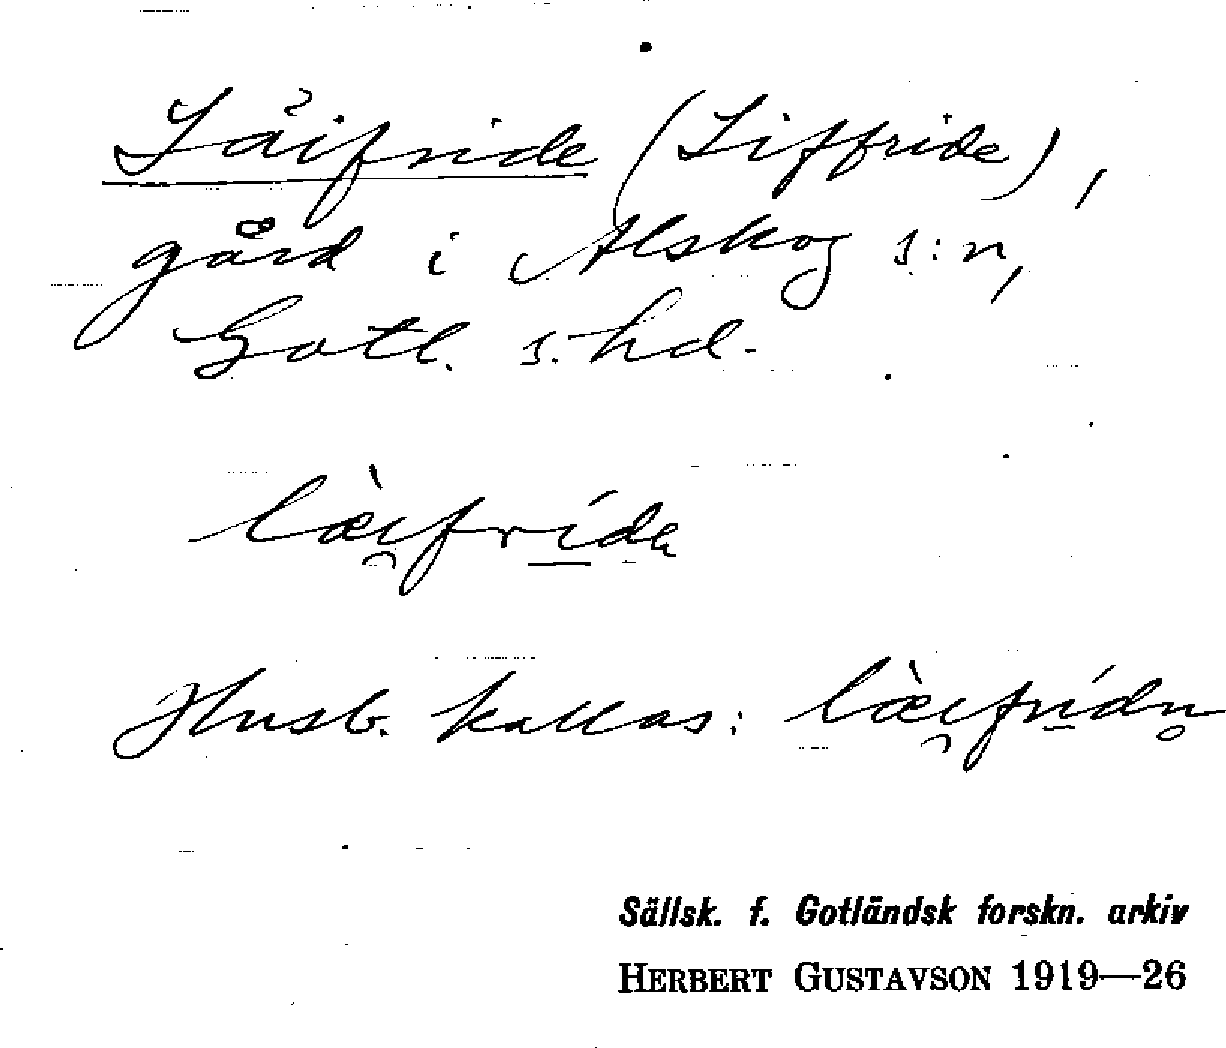 Läifride (Liffride),
gård i Alskog s:n,
Gotl. s. hd.
læ̀i̯frída
Husb. kallas: læ̀i̯frídn̥
Sällsk. f. Gotländsk forskn. arkiv
HERBERT GUSTAVSON 1919—26